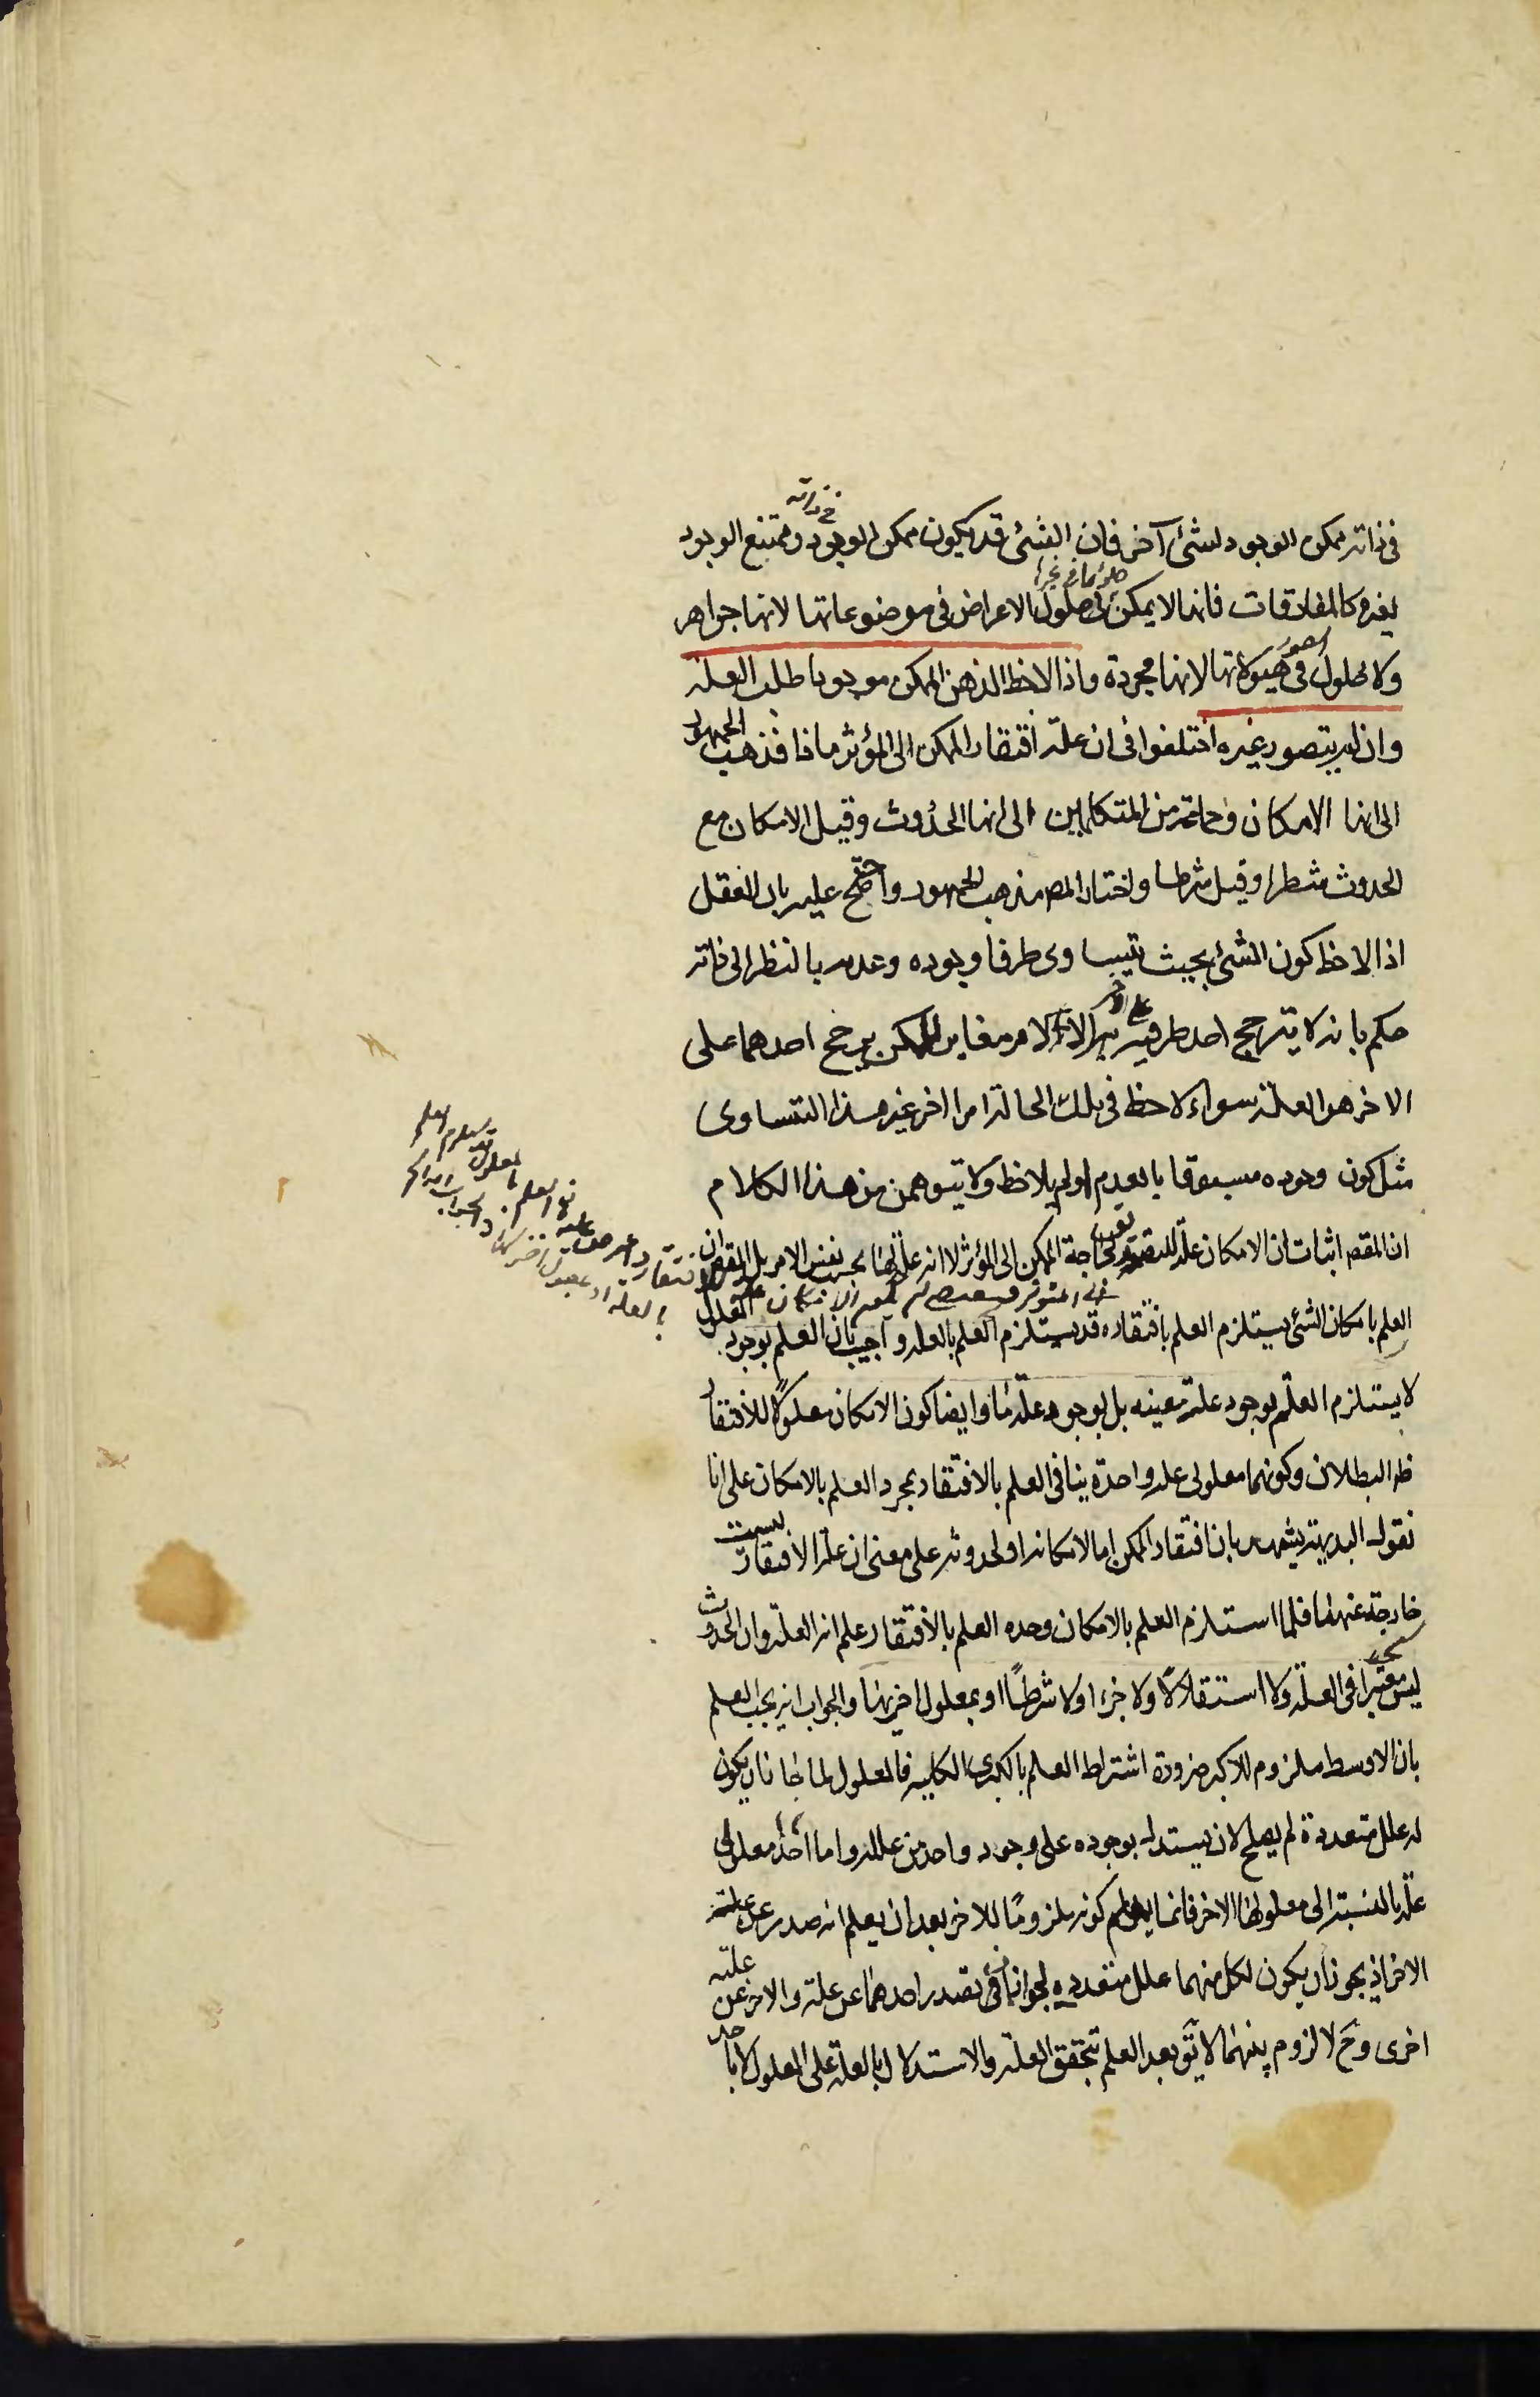 في ذاته ممكن الوجود لشئ آخر فان الشئ قد يكون ممكن الوجود في ذاته وممتنع الوجود
لغيره كالمفارقات فانها لا يمكن حلولها في غيرها حلول الاعراض في موضوعاتها لانها جواهر
ولا حلول الصور في هيولاتها لانها مجردة واذا لاحظ الذهن الممكن موجودا طلب العلة
وان لم يتصور غيره اختلفوا في ان علة افتقار الممكن الى المؤثر ماذا فذهب الجمهور
الى انها الامكان وجماعة من المتكلمين الى انها الحدوث وقيل الامكان مع
الحدوث شطرا وقيل شرطا واختار المص مذهب الجمهور واحتج عليه بان العقل
اذا لاحظ كون الشئ بحيث يتساوى طرفا وجوده وعدمه بالنظر الى ذاته
حكم بانه لا يترجح احد طرفيه على الاخر الا لامر مغاير للممكن يرجح احدهما على
الاخر هو العلة سواء لاحظ في تلك الحالة امرا اخر غير هذا التساوى
مثل كون وجوده مسبوقا بالعدم او لم يلاحظ ولا يتوهمن من هذا الكلام
ان المقصد اثبات ان الامكان علة للتصديق بحاجة الممكن الى المؤثر لا انه علة لها بحسب نفس الامر بل المقصد ان
العلم بامكان الشئ يستلزم العلم بافتقاره قد يستلزم العلم بالعلة و اجيب بان العلم بوجود المعلول
لا يستلزم العلم بوجود علة معينه بل بوجود علة ما وايضا كون الامكان معلولا للافتقار
ظ البطلان وكونهما معلولى علة واحدة ينافى العلم بالافتقار بمجرد العلم بالامكان على انا
نقول البديهة يشهد بان افتقار الممكن اما لامكانه او لحدوثه على معنى ان علة الافتقار ليست
خارجة عنهما فلما استلزم العلم بالامكان وحده العلم بالافتقار علم انه العلة وان الحدوث
ليس معتبرا في العلة ولا استقلالا ولا جزء ا ولا شرطا او بمعلول اخر لها والجواب انه يجب العلم
بان الاوسط ملزوم للاكبر ضرورة اشتراط العلم بالكبرى الكلية فالمعلول لما جاز ان يكون
له علل متعددة لم يصلح لان يستدل بوجوده على وجود واحد من علله واما احد معلولى
علة بالنسبة الى معلولها الاخر فانما يعلم كونه ملزوما للاخر بعد ان يعلم انه صدر عن علة
الاخر اذ يجوز ان يكون لكل منهما علل متعدده لجواز ان يصدر احدهما عن علة والاخر عن علة
اخرى وح لا لزوم بينهما لا يق بعد العلم بتحقق العلة والاستدلال بالعلة على المعلول لا باحد